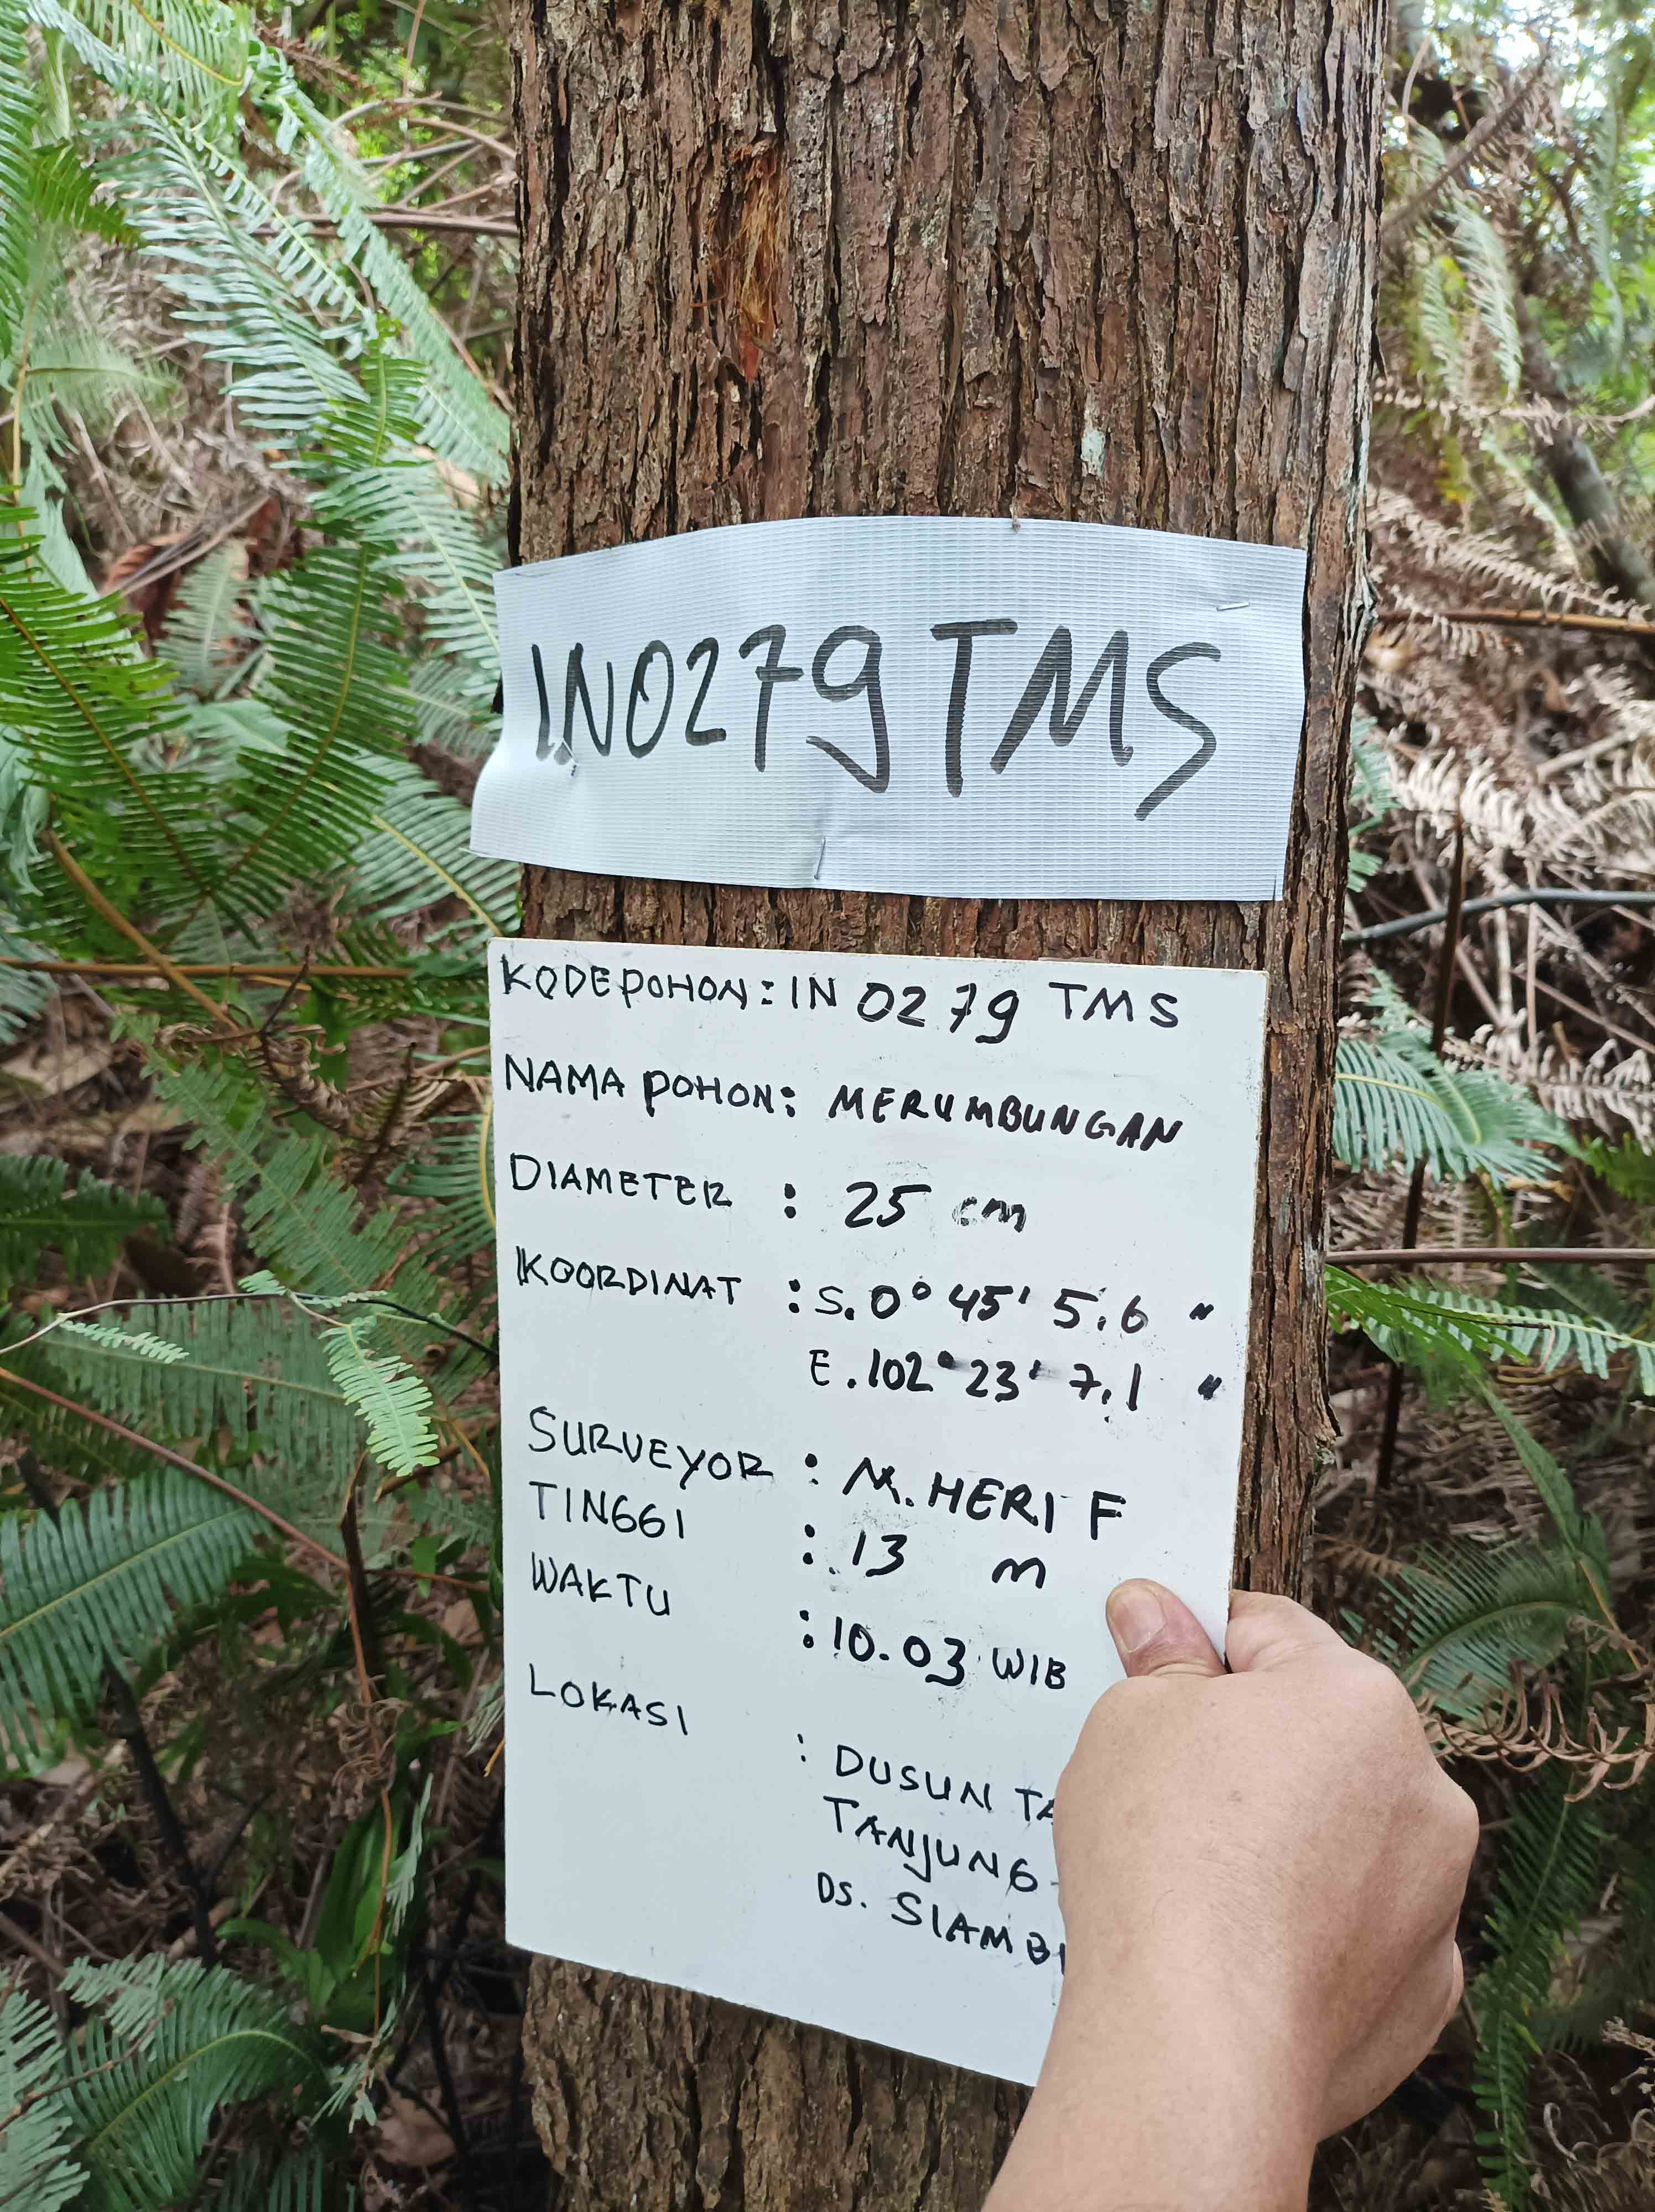 IN0279TMS
KODE POHON : IN 0279 TMS
NAMA POHON : MERUMBUNGAN
DIAMETER : 25 cm
KOORDINAT : S. 0° 45' 5,6 "
E. 102° 23' 7,1 "
SURVEYOR : M. HERI F
TINGGI : 13 m
WAKTU : 10.03 WIB
LOKASI : DUSUN
TANJUNG
DS.